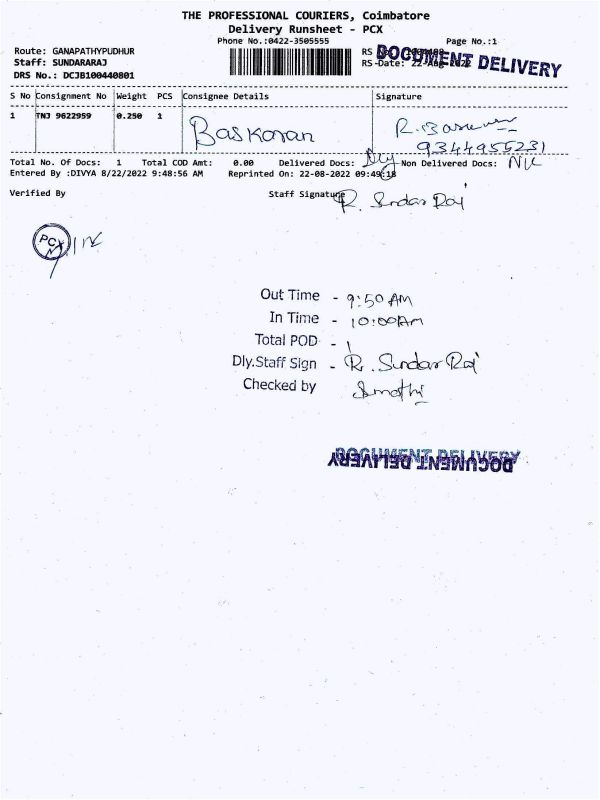 THE PROFESSIONAL COURIERS, Coimbatore
Delivery Runsheet - PCX
Phone No.:0422-3505555
Page No.:1
Route: GANAPATHYPUDHUR
RS No.:
DOCUMENT DELIVERY
Staff: SUNDARARAJ
RS-Date: 22-Aug-2022
DRS No.: DCJB100440801
S No Consignment No Weight PCS Consignee Details Signature
1 TNJ 9622959 0.250 1 Baskaran R. Baskaran
9344955231
Total No. Of Docs: 1 Total COD Amt: 0.00 Delivered Docs: Non Delivered Docs: Nil
Entered By :DIVYA 8/22/2022 9:48:56 AM Reprinted On: 22-08-2022 09:49:18
Verified By Staff Signature R. Sundar Raj
PCX
Out Time - 9:50 AM
In Time - 10:00 AM
Total POD - 1
Dly.Staff Sign - R. Sundar Raj
Checked by
DOCUMENT DELIVERY
DOCUMENT DELIVERY